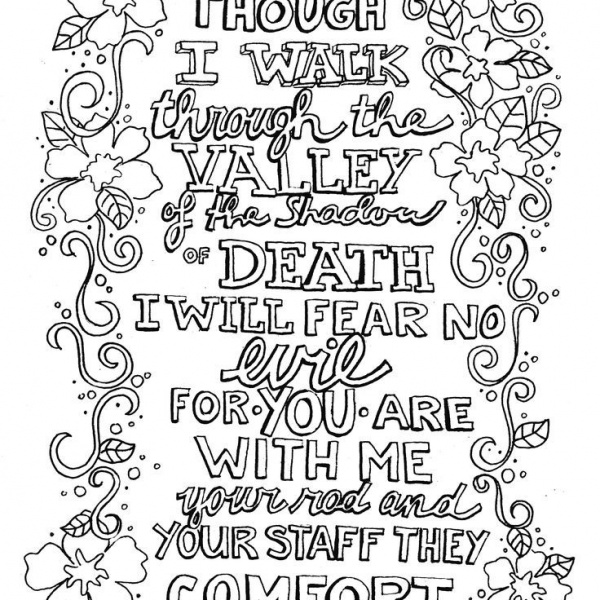 THOUGH
I WALK
through the
VALLEY
of the shadow
OF DEATH
I WILL FEAR NO
evil
FOR·YOU·ARE
WITH ME
your rod and
YOUR STAFF THEY
COMFORT